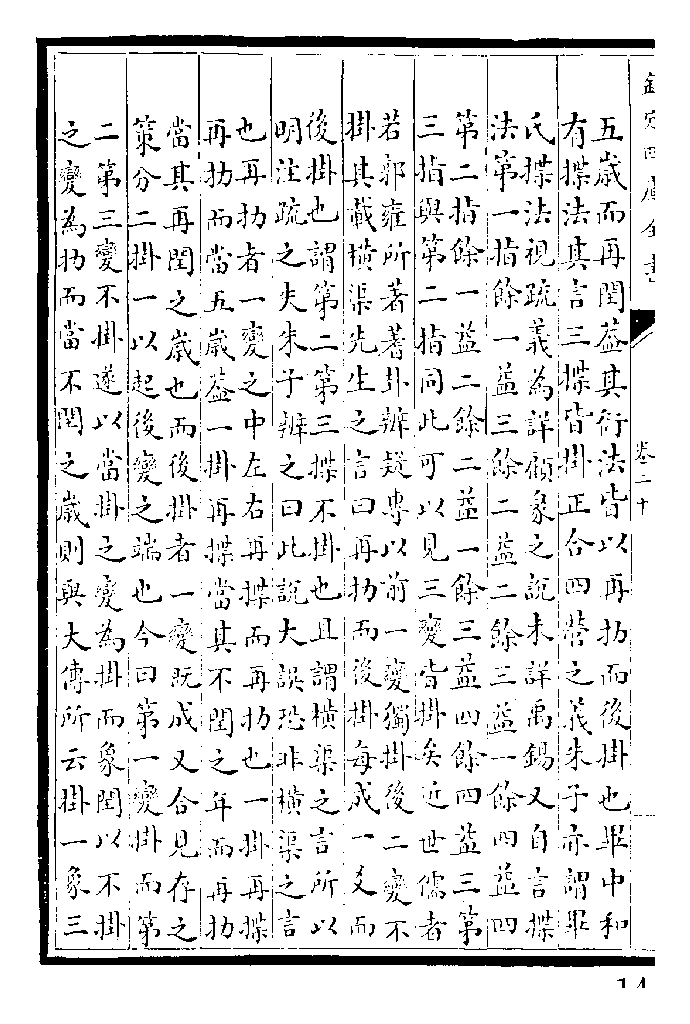 欽定四庫全書
卷二十
五歲而再閏葢其衍法皆以再扐而後掛也畢中和
有揲法其言三揲皆掛正合四營之義朱子亦謂畢
氏揲法視疏義為詳顧彖之說未詳禹錫又自言揲
法第一指餘一益三餘二益二餘三益一餘四益四
第二指餘一益二餘二益一餘三益四餘四益三第
三指與第二指同此可以見三變皆掛矣近世儒者
若郭雍所著蓍卦辨疑專以前一變獨掛後二變不
掛其載橫渠先生之言曰再扐而後掛每成一爻而
後掛也謂第二第三揲不掛也且謂橫渠之言所以
明注疏之失朱子辨之曰此說大誤恐非橫渠之言
也再扐者一變之中左右再揲而再扐也一掛再揲
再扐而當五歲葢一掛再揲當其不閏之年而再扐
當其再閏之歲也而後掛者一變既成又合見存之
策分二掛一以起後變之端也今曰第一變掛而第
二第三變不掛遂以當掛之變為掛而象閏以不掛
之變為扐而當不閏之歲則與大傳所云掛一象三
14